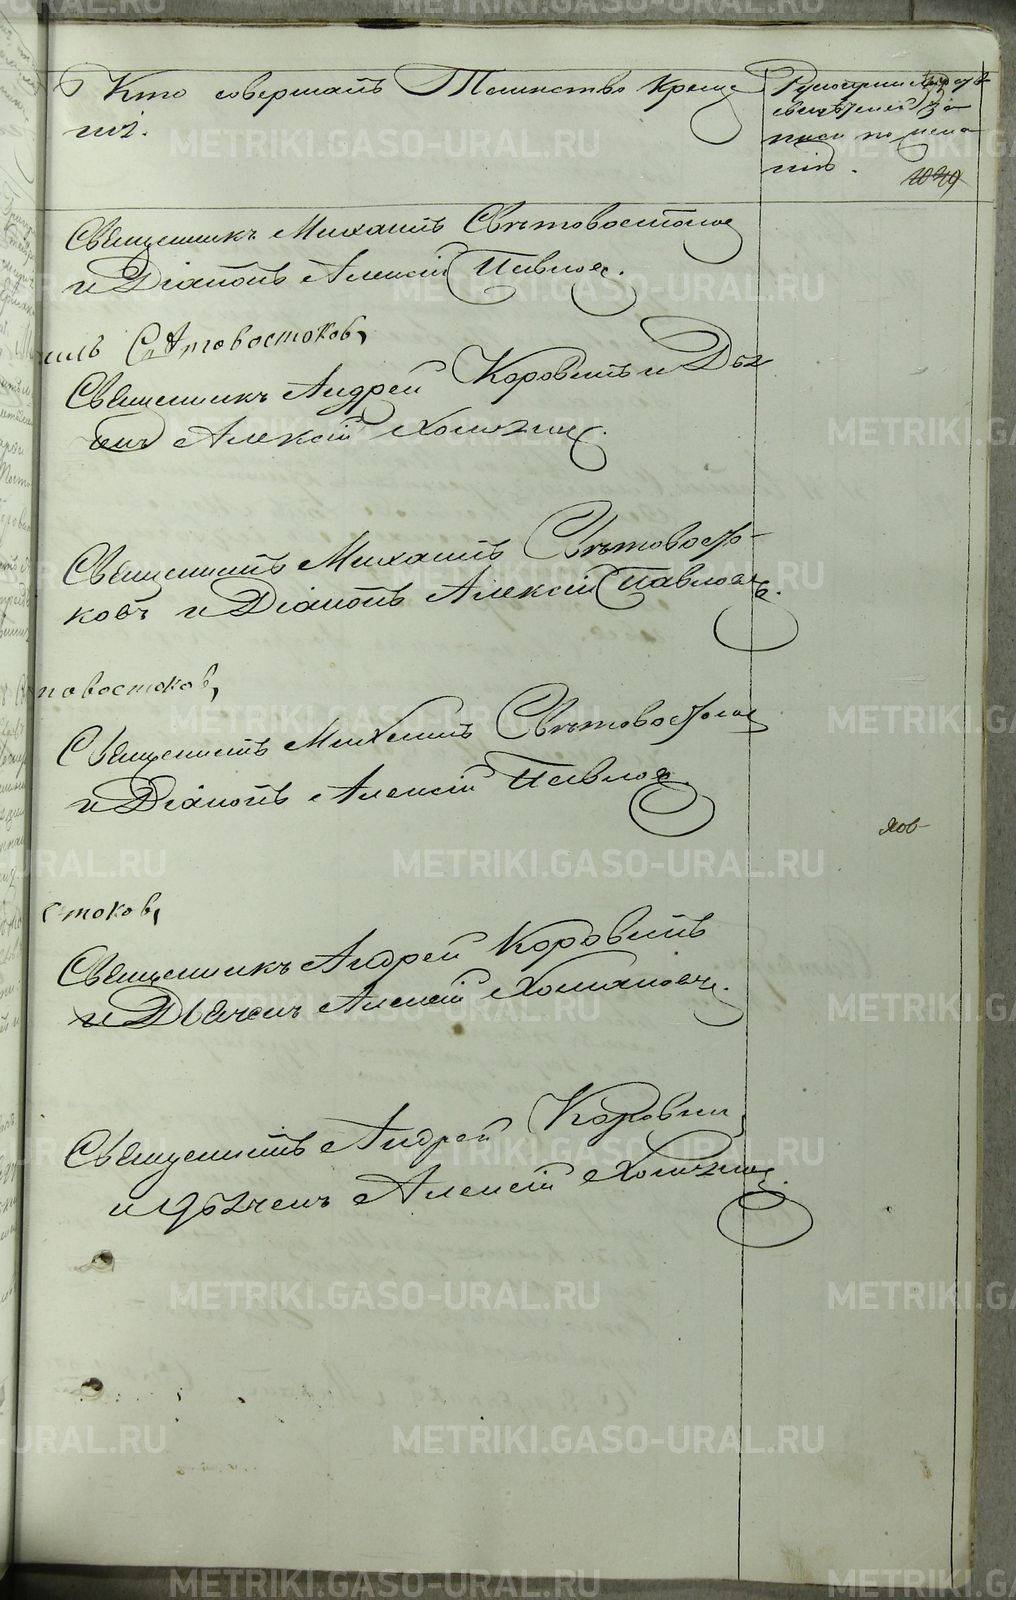 Кто совершалъ Таинство Креще
нія.
Рукоприкладство
свидѣтелей за
писи по жела
нію.
Священникъ Михаилъ Свѣтовостоков
и Діаконъ Алексій Павлов.
илъ Свѣтовостоков,
Священникъ Андрей Коровинъ и Дья
Алексій
Священникъ Михаилъ Свѣтовосто-
ковъ и Діаконъ Алексій Павловъ.
товостоков,
Священникъ Михаилъ Свѣтовостоков
и Діаконъ Алексій Павлов.
стоков,
Священникъ Андрей Коровинъ
и Дьячекъ Алексій
Священникъ Андрей Коровин
и Дьячекъ Алексій
METRIKI.GASO-URAL.RU